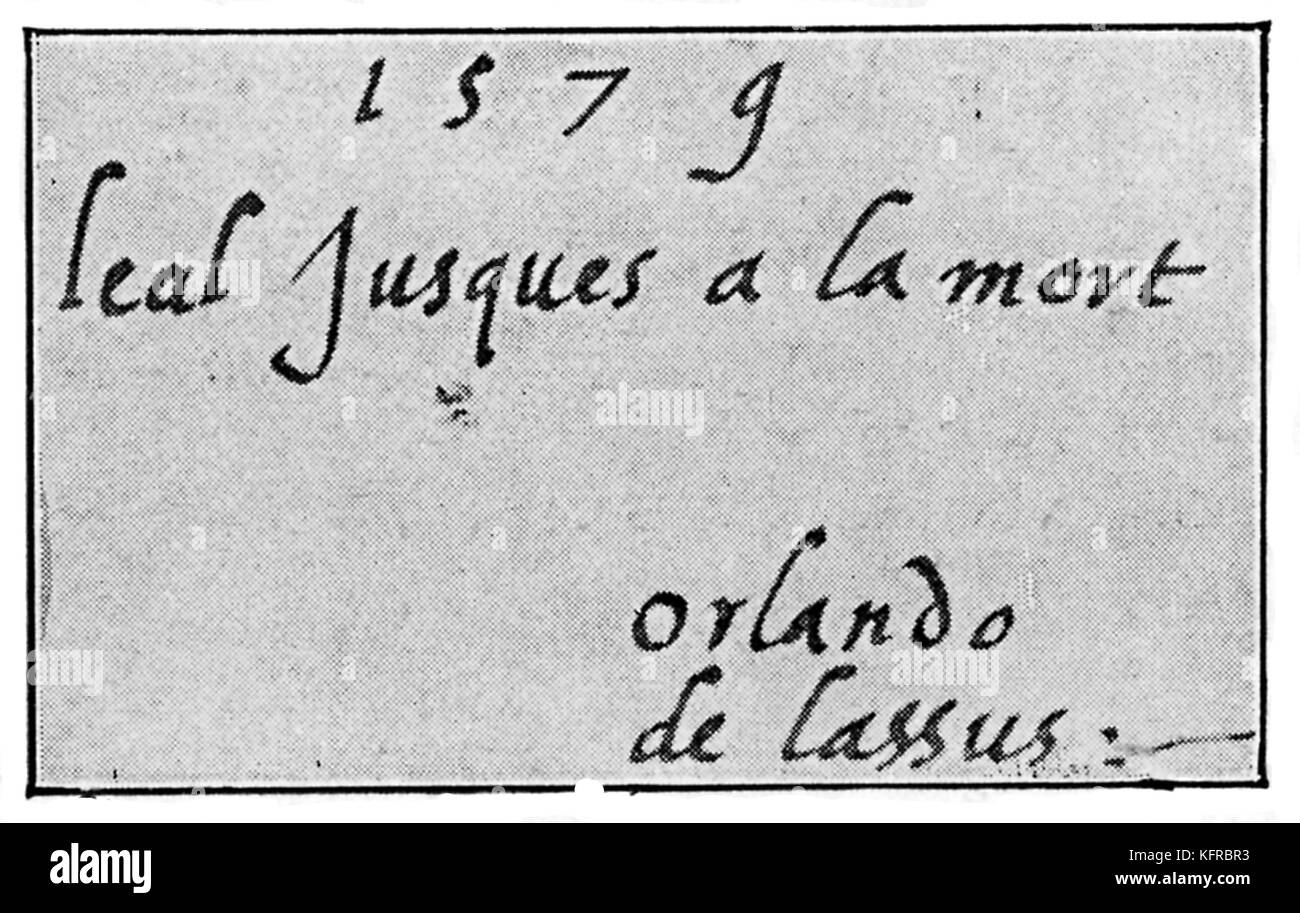 1579
leal Jusques a la mort
orlando
de lassus :
a
alamy
a
alamy
alamy
Image ID: KFRBR3
www.alamy.com